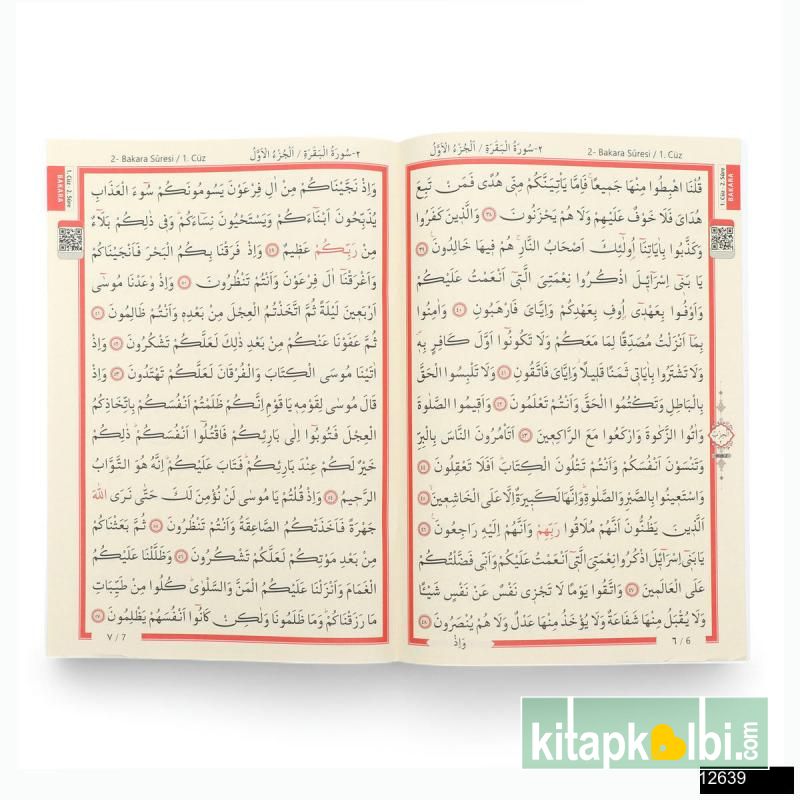 ٢-سُورَةُ الْبَقَرَةِ / اَلْجُزْءُ الْاَوَّلُ
2- Bakara Sûresi / 1. Cüz
1. Cüz - 2. Sûre
BAKARA
قُلْنَا اهْبِطُوا مِنْهَا جَمٖيعًاۚ فَاِمَّا يَاْتِيَنَّكُمْ مِنّٖى هُدًى فَمَنْ تَبِعَ
هُدَاىَ فَلَا خَوْفٌ عَلَيْهِمْ وَلَا هُمْ يَحْزَنُونَ ﴿٣٨﴾ وَالَّذٖينَ كَفَرُوا
وَكَذَّبُوا بِاٰيَاتِنَٓا اُو۬لٰٓئِكَ اَصْحَابُ النَّارِۚ هُمْ فٖيهَا خَالِدُونَ ﴿٣٩﴾
يَا بَنٖٓى اِسْرَٓائٖلَ اذْكُرُوا نِعْمَتِىَ الَّتٖٓى اَنْعَمْتُ عَلَيْكُمْ
وَاَوْفُوا بِعَهْدٖٓى اُوفِ بِعَهْدِكُمْ وَاِيَّاىَ فَارْهَبُونِ ﴿٤٠﴾ وَاٰمِنُوا
بِمَٓا اَنْزَلْتُ مُصَدِّقًا لِمَا مَعَكُمْ وَلَا تَكُونُٓوا اَوَّلَ كَافِرٍ بِهٖ
وَلَا تَشْتَرُوا بِاٰيَاتٖى ثَمَنًا قَلٖيلًا وَاِيَّاىَ فَاتَّقُونِ ﴿٤١﴾ وَلَا تَلْبِسُوا الْحَقَّ
بِالْبَاطِلِ وَتَكْتُمُوا الْحَقَّ وَاَنْتُمْ تَعْلَمُونَ ﴿٤٢﴾ وَاَقٖيمُوا الصَّلٰوةَ
وَاٰتُوا الزَّكٰوةَ وَارْكَعُوا مَعَ الرَّاكِعٖينَ ﴿٤٣﴾ اَتَاْمُرُونَ النَّاسَ بِالْبِرِّ
وَتَنْسَوْنَ اَنْفُسَكُمْ وَاَنْتُمْ تَتْلُونَ الْكِتَابَۜ اَفَلَا تَعْقِلُونَ ﴿٤٤﴾
وَاسْتَعٖينُوا بِالصَّبْرِ وَالصَّلٰوةِۜ وَاِنَّهَا لَكَبٖيرَةٌ اِلَّا عَلَى الْخَاشِعٖينَۙ ﴿٤٥﴾
اَلَّذٖينَ يَظُنُّونَ اَنَّهُمْ مُلَاقُوا رَبِّهِمْ وَاَنَّهُمْ اِلَيْهِ رَاجِعُونَ ﴿٤٦﴾
يَا بَنٖٓى اِسْرَٓائٖلَ اذْكُرُوا نِعْمَتِىَ الَّتٖٓى اَنْعَمْتُ عَلَيْكُمْ وَاَنّٖى فَضَّلْتُكُمْ
عَلَى الْعَالَمٖينَ ﴿٤٧﴾ وَاتَّقُوا يَوْمًا لَا تَجْزٖى نَفْسٌ عَنْ نَفْسٍ شَيْـًٔا
وَلَا يُقْبَلُ مِنْهَا شَفَاعَةٌ وَلَا يُؤْخَذُ مِنْهَا عَدْلٌ وَلَا هُمْ يُنْصَرُونَ ﴿٤٨﴾
٦ / 6
وَاِذْ
٢-سُورَةُ الْبَقَرَةِ / اَلْجُزْءُ الْاَوَّلُ
2- Bakara Sûresi / 1. Cüz
1. Cüz - 2. Sûre
BAKARA
وَاِذْ نَجَّيْنَاكُمْ مِنْ اٰلِ فِرْعَوْنَ يَسُومُونَكُمْ سُٓوءَ الْعَذَابِ
يُذَبِّحُونَ اَبْنَٓاءَكُمْ وَيَسْتَحْيُونَ نِسَٓاءَكُمْۜ وَفٖى ذٰلِكُمْ بَلَٓاءٌ
مِنْ رَبِّكُمْ عَظٖيمٌ ﴿٤٩﴾ وَاِذْ فَرَقْنَا بِكُمُ الْبَحْرَ فَاَنْجَيْنَاكُمْ
وَاَغْرَقْنَٓا اٰلَ فِرْعَوْنَ وَاَنْتُمْ تَنْظُرُونَ ﴿٥٠﴾ وَاِذْ وٰعَدْنَا مُوسٰٓى
اَرْبَعٖينَ لَيْلَةً ثُمَّ اتَّخَذْتُمُ الْعِجْلَ مِنْ بَعْدِهٖ وَاَنْتُمْ ظَالِمُونَ ﴿٥١﴾
ثُمَّ عَفَوْنَا عَنْكُمْ مِنْ بَعْدِ ذٰلِكَ لَعَلَّكُمْ تَشْكُرُونَ ﴿٥٢﴾ وَاِذْ
اٰتَيْنَا مُوسَى الْكِتَابَ وَالْفُرْقَانَ لَعَلَّكُمْ تَهْتَدُونَ ﴿٥٣﴾ وَاِذْ
قَالَ مُوسٰى لِقَوْمِهٖ يَا قَوْمِ اِنَّكُمْ ظَلَمْتُمْ اَنْفُسَكُمْ بِاتِّخَاذِكُمُ
الْعِجْلَ فَتُوبُٓوا اِلٰى بَارِئِكُمْ فَاقْتُلُٓوا اَنْفُسَكُمْۜ ذٰلِكُمْ
خَيْرٌ لَكُمْ عِنْدَ بَارِئِكُمْۜ فَتَابَ عَلَيْكُمْۜ اِنَّهُ هُوَ التَّوَّابُ
الرَّحٖيمُ ﴿٥٤﴾ وَاِذْ قُلْتُمْ يَا مُوسٰى لَنْ نُؤْمِنَ لَكَ حَتّٰى نَرَى اللّٰهَ
جَهْرَةً فَاَخَذَتْكُمُ الصَّاعِقَةُ وَاَنْتُمْ تَنْظُرُونَ ﴿٥٥﴾ ثُمَّ بَعَثْنَاكُمْ
مِنْ بَعْدِ مَوْتِكُمْ لَعَلَّكُمْ تَشْكُرُونَ ﴿٥٦﴾ وَظَلَّلْنَا عَلَيْكُمُ
الْغَمَامَ وَاَنْزَلْنَا عَلَيْكُمُ الْمَنَّ وَالسَّلْوٰىۜ كُلُوا مِنْ طَيِّبَاتِ
مَا رَزَقْنَاكُمْۜ وَمَا ظَلَمُونَا وَلٰكِنْ كَانُٓوا اَنْفُسَهُمْ يَظْلِمُونَ ﴿٥٧﴾
٧ / 7
kitapkalbi.com
12639